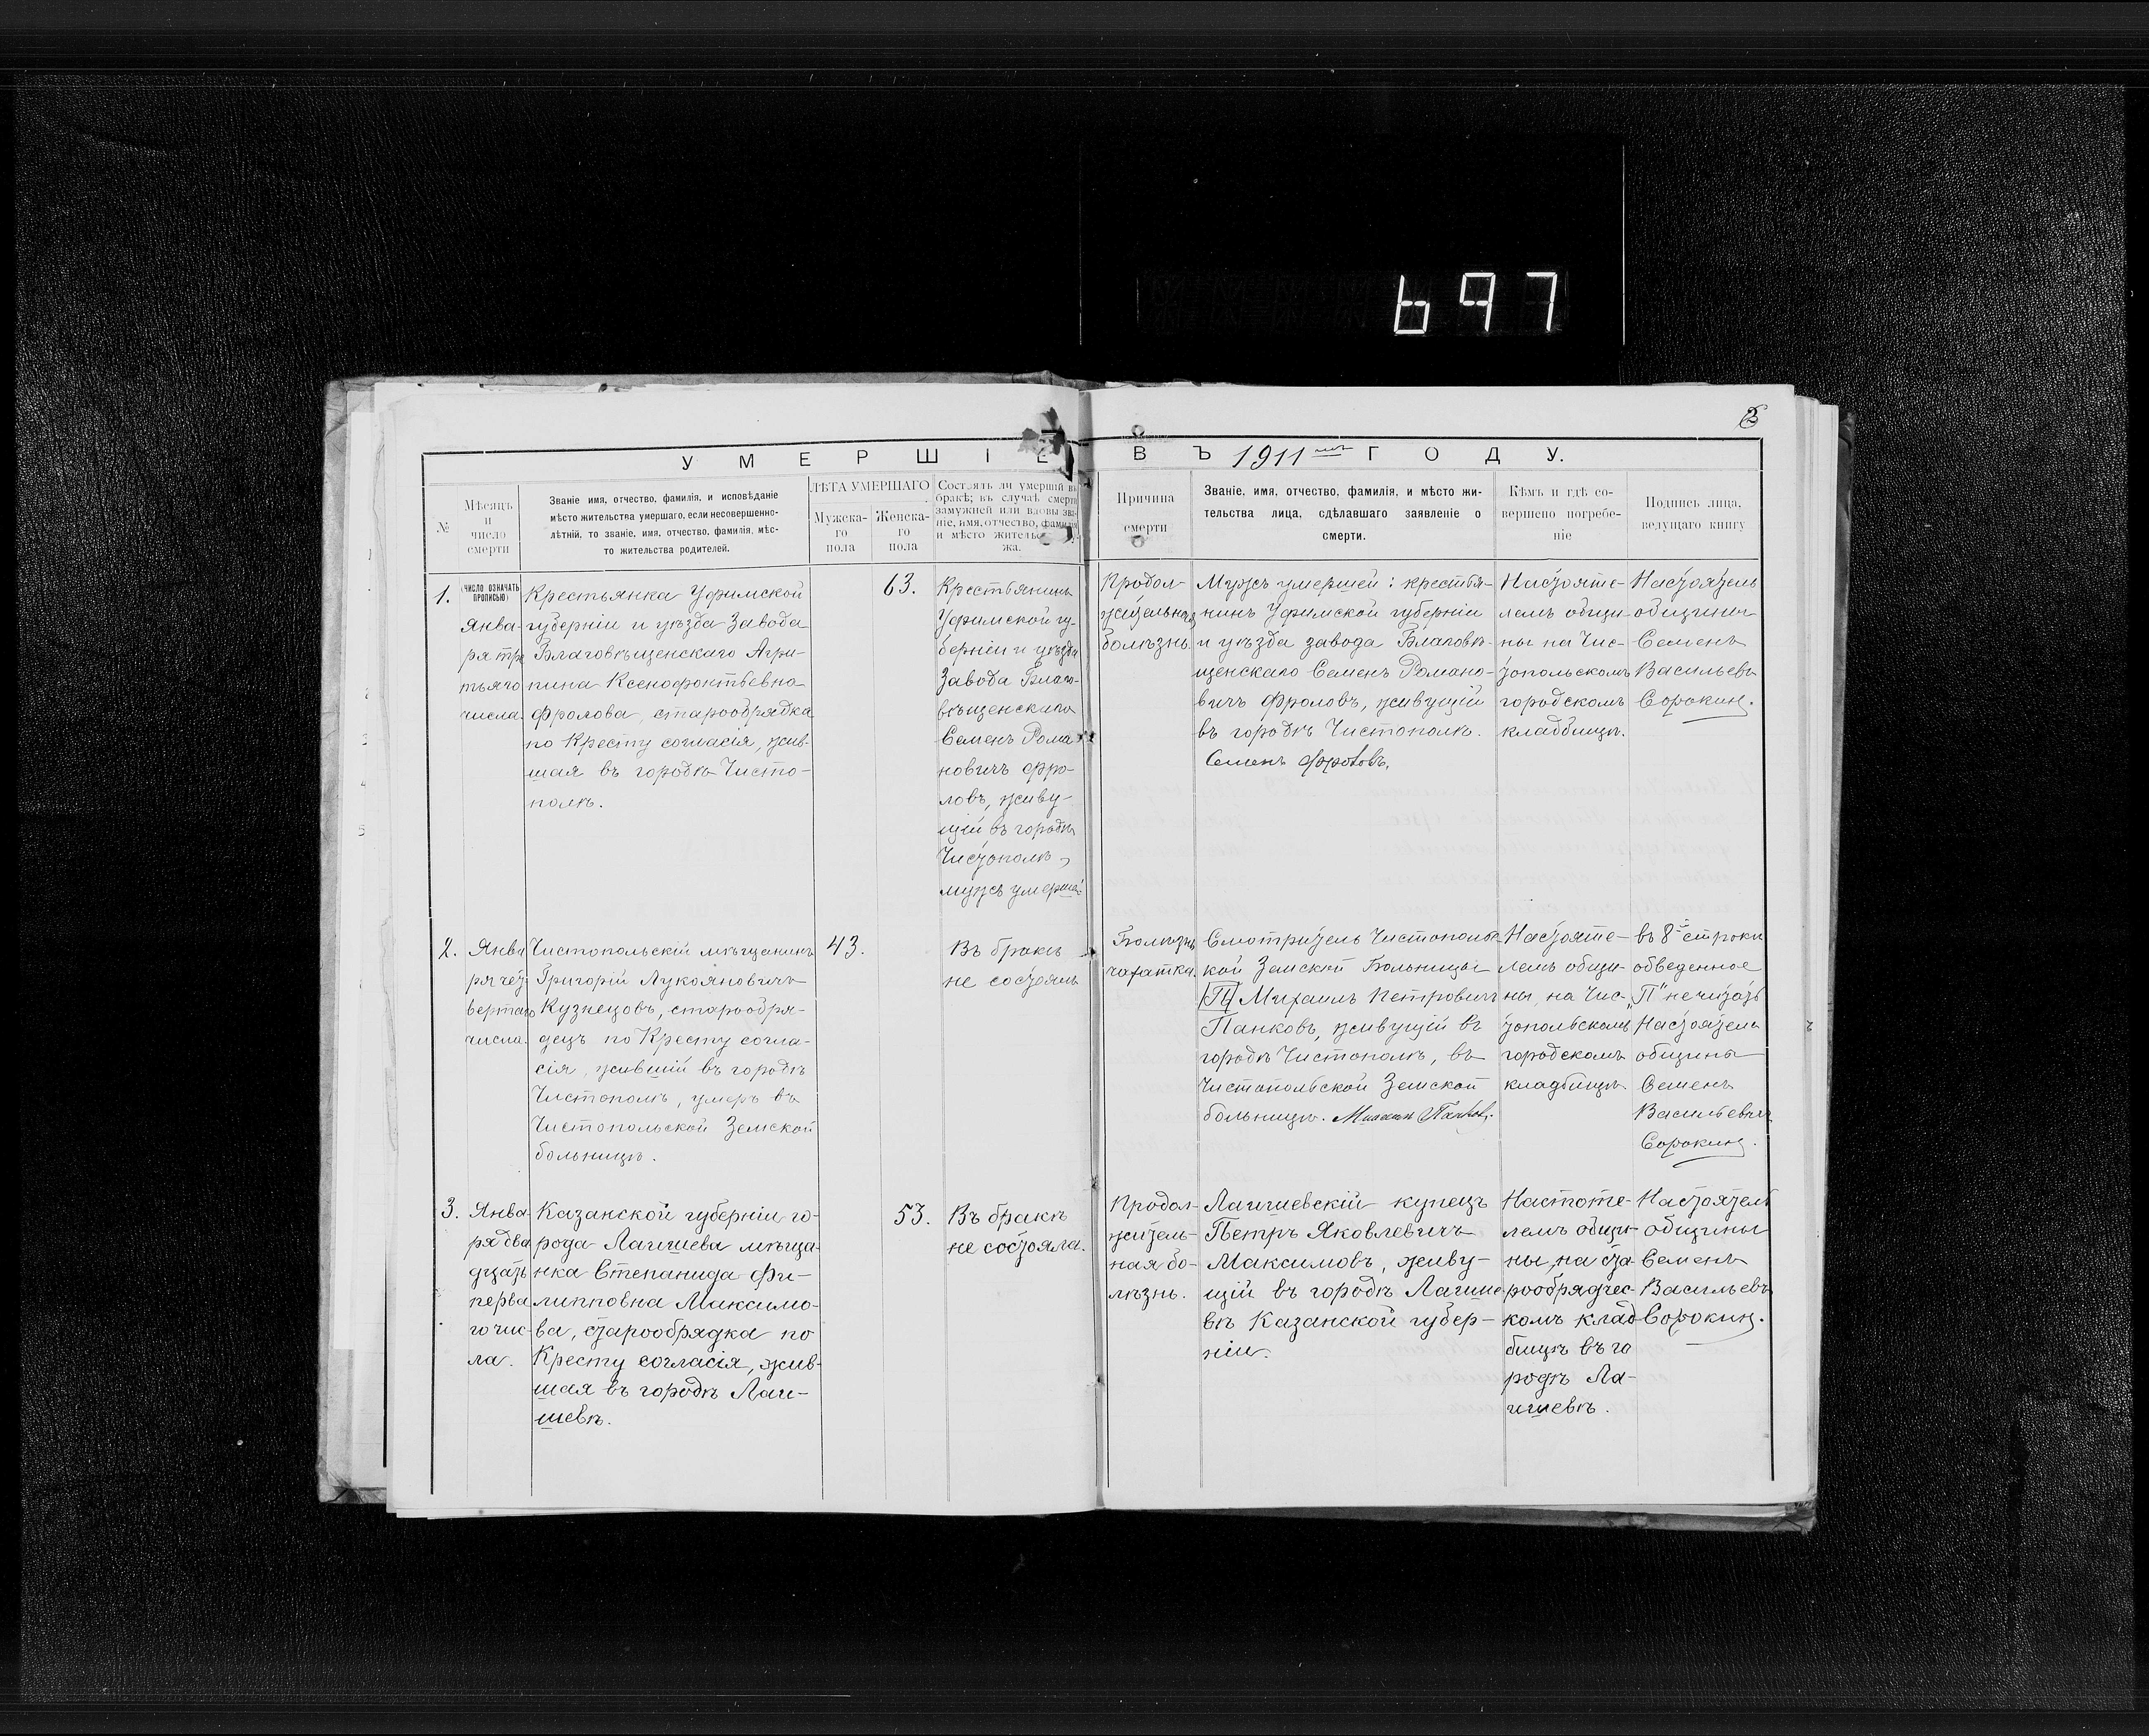 697
2
УМЕРШІЕ ВЪ 1911мъ ГОДУ.
№
Мѣсяцъ
и
число
смерти
Званіе имя, отчество, фамилія, и исповѣданіе
мѣсто жительства умершаго, если несовершенно-
лѣтній, то званіе, имя, отчество, фамилія, мѣс-
то жительства родителей.
ЛѢТА УМЕРШАГО
Мужска-
го
пола
Женска-
го
пола
Состоятъ ли умершій въ
бракѣ; въ случаѣ смерти
замужней или вдовы зва-
ніе, имя, отчество, фамилія
и мѣсто жительства му-
жа.
Причина
смерти
Званіе, имя, отчество, фамилія, и мѣсто жи-
тельства лица, сдѣлавшаго заявленіе о
смерти.
Кѣмъ и гдѣ со-
вершено погребе-
ніе
Подпись лица,
ведущаго книгу
1.
(ЧИСЛО ОЗНАЧАТЬ
ПРОПИСЬЮ)
Янва-
ря тре
тьяго
числа.
Крестьянка Уфимской
губерніи и уѣзда Завода
Благовѣщенскаго Агри-
пина Ксенофонтьевна
Фролова, старообрядка
по Кресту согласія, жив-
шая въ городѣ Чисто-
полѣ.
63.
Крестьянинъ
Уфимской гу-
берніи и уѣзда
Завода Благо-
вѣщенскаго
Семенъ Рома
новичъ Фро-
ловъ, живу-
щій въ городѣ
Чистополѣ,
мужъ умершей
Продол-
жительная
болѣзнь.
Мужъ умершей: крестья-
нинъ Уфимской губерніи
и уѣзда завода Благовѣ-
щенскаго Семенъ Романо-
вичъ Фроловъ, живущій
въ городѣ Чистополѣ.
Семенъ Фроловъ.
Настояте-
лемъ общи-
ны на Чис-
топольскомъ
городскомъ
кладбищѣ.
Настоятель
общины
Семенъ
Васильевъ
Сорокинъ.
2.
Янва
ря чет
вертаго
числа.
Чистопольскій мѣщанинъ
Григорій Лукояновичъ
Кузнецовъ, старообря-
децъ по Кресту согла-
сія, жившій въ городѣ
Чистополѣ, умеръ въ
Чистопольской Земской
больницѣ.
43.
Въ бракѣ
не состоялъ
Болѣзнь
чахатка.
Смотритель Чистопольс
кой Земской Больницы
П Михаилъ Петровичъ
Панковъ, живущій въ
городѣ Чистополѣ, въ
Чистопольской Земской
больницѣ. Михаилъ Панковъ.
Настояте-
лемъ общи-
ны, на Чис-
топольскомъ
городскомъ
кладбищѣ
въ 8й строки
обведенное
„П" не читать
Настоятель
общины
Семенъ
Васильевичъ
Сорокинъ.
3.
Янва-
ря два
дцать
перва
го чис-
ла.
Казанской губерніи го-
рода Лаишева мѣща-
нка Степанида Фи-
липповна Максимо-
ва, старообрядка по
Кресту согласія, жив-
шая въ городѣ Лаи-
шевѣ.
53.
Въ бракѣ
не состояла.
Продол-
житель-
ная бо-
лѣзнь.
Лаишевскій купецъ
Петръ Яковлевичъ
Максимовъ, живу-
щій въ городѣ Лаише
вѣ Казанской губер-
ніи.
Настояте-
лемъ общи-
ны, на ста-
рообрядчес-
комъ клад
бищѣ въ го
родѣ Ла-
ишевѣ.
Настоятель
общины
Семенъ
Васильевъ
Сорокинъ.